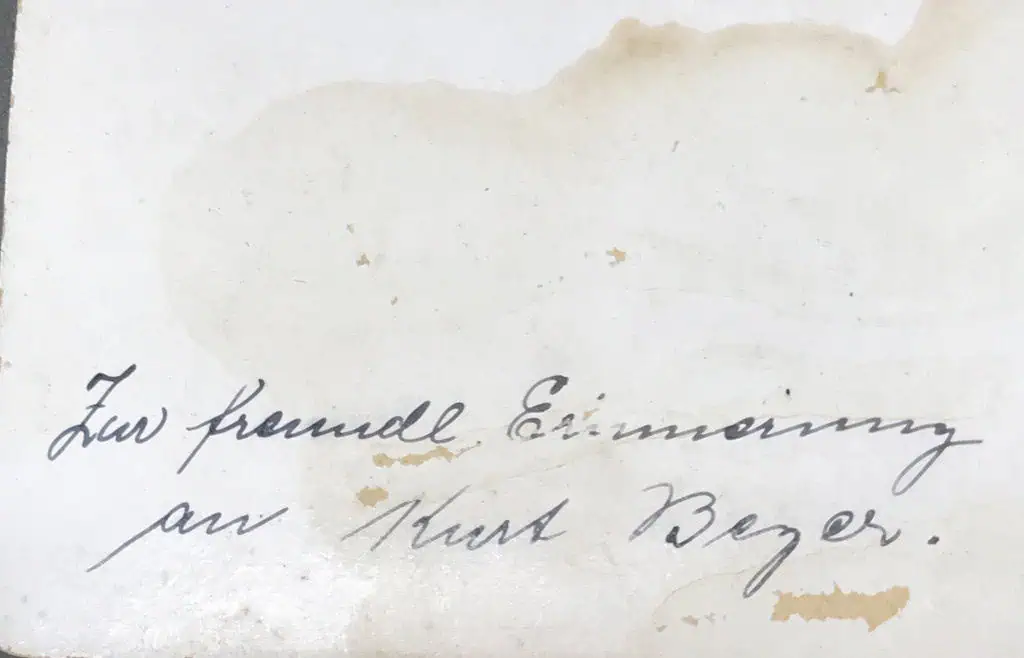 Zur freundl. Erinnerung
an Kurt Beyer.